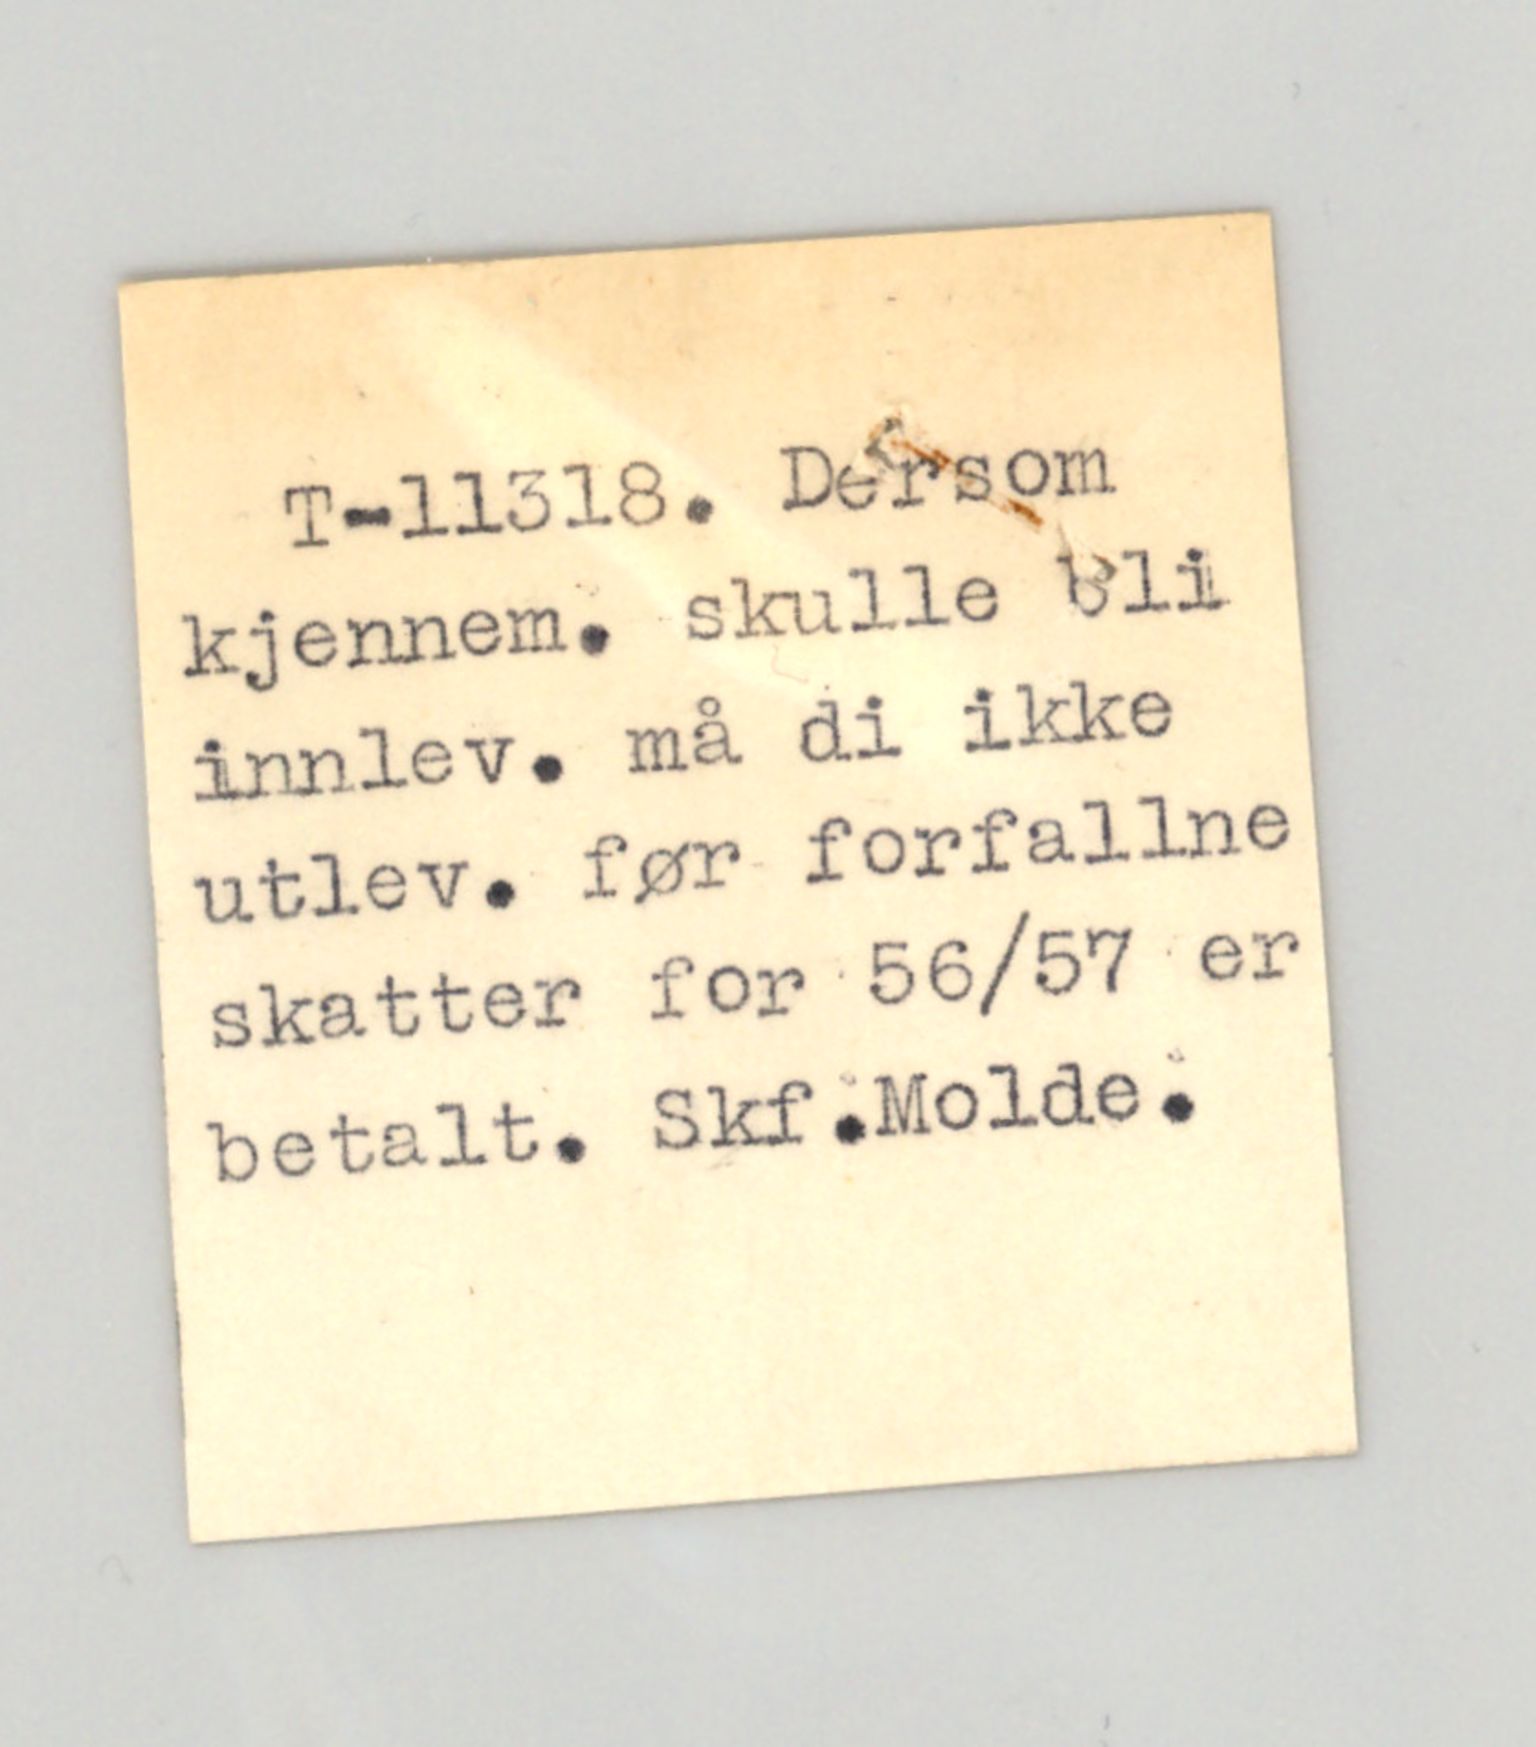 T-11318. Dersom
kjennem. skulle bli
innlev. må di ikke
utlev. før forfallne
skatter for 56/57 er
betalt. Skf.Molde.